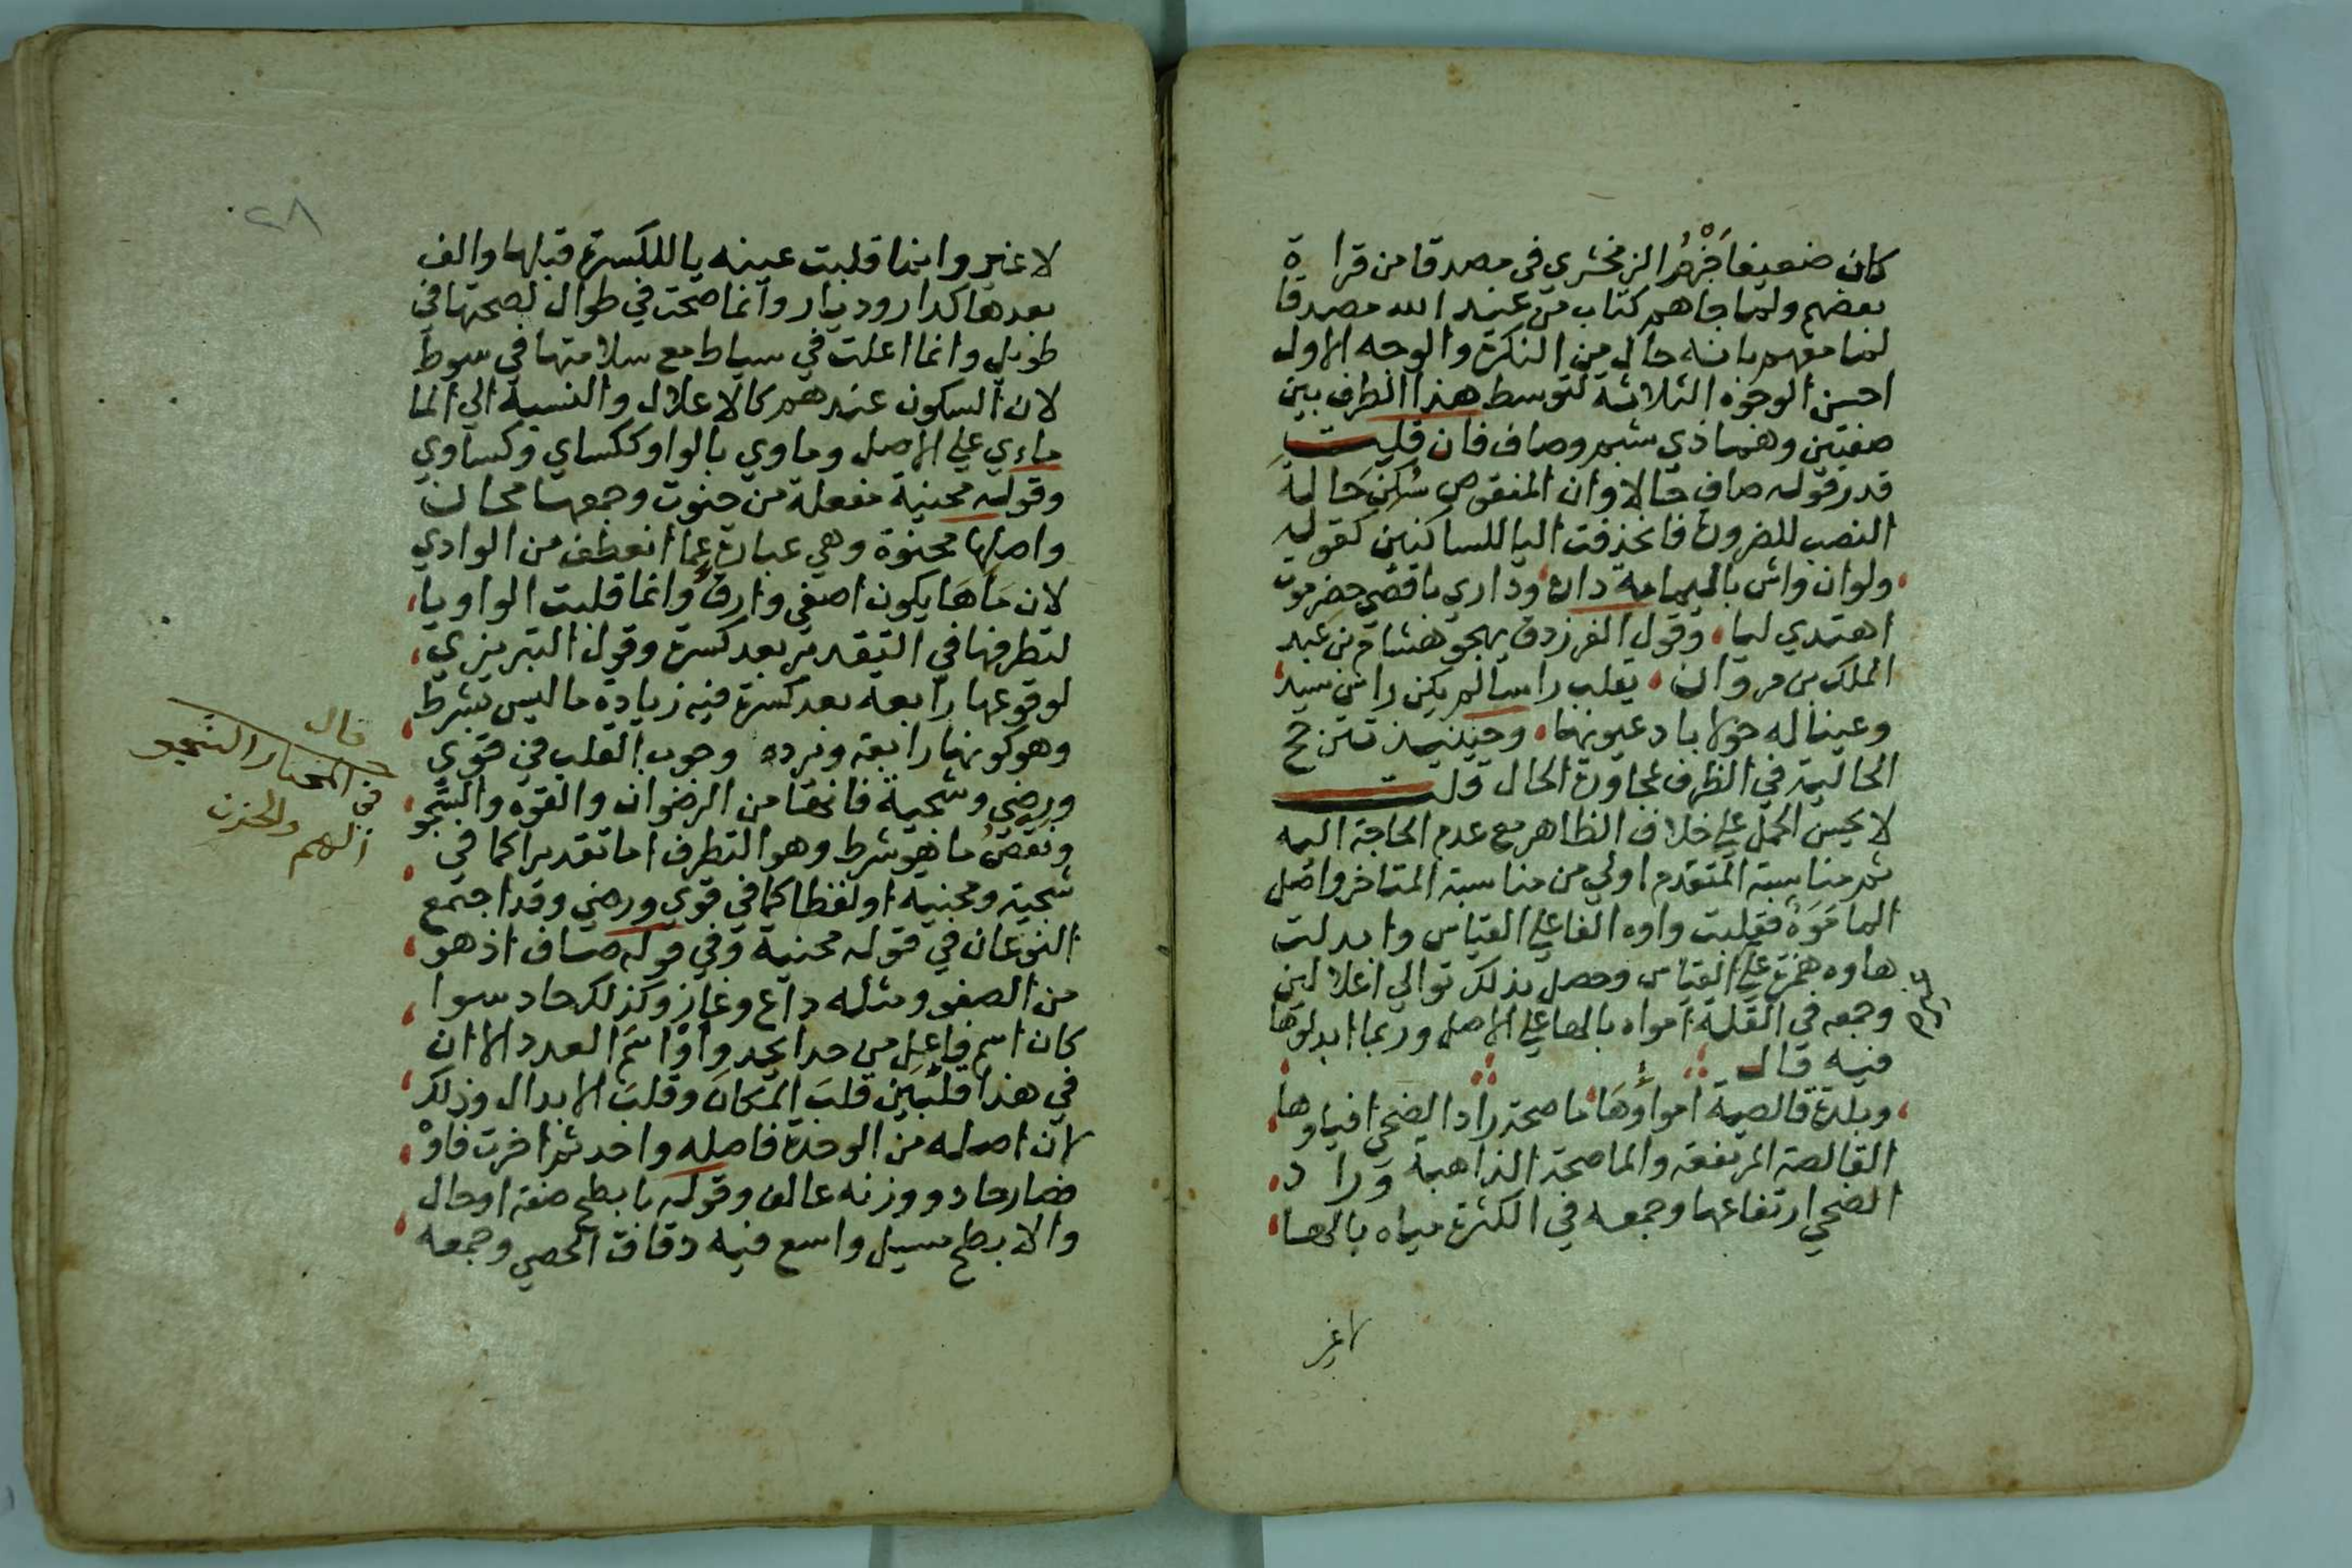 كان ضعيفا جَزْمُ الزمخشري في مصدقا من قراءة
بعضهم ولما جاهم كتاب من عند الله مصدقا
لما معهم بانه حال من النكرة والوجه الاول
احسن الوجوه الثلاثة لتوسط هذا الظرف بين
صفتين وهما ذي شبم وصاف فان قلت
قدر قوله صاف حالا وان المنقوص سُكِّنَ حالة
النصب للضرورة فانحذفت اليا للساكنين كقوله
ولو ان واش باليمامة داره وداري باقصى حضرموت
اهتدى ليا وقول الفرزدق يهجو هشام بن عبد
الملك بن مروان يقلب راسا لم يكن راس سيد
وعينا له حولا باد عيوبها وحينيذ تترجح
الحالية في الظرف لمجاورة الحال قلت
لا يحسن الحمل على خلاف الظاهر مع عدم الحاجة اليه
ثم مناسبة المتقدم اولى من مناسبة المتاخر واصل
الما مَوَهٌ فقلبت واوه الفا على القياس وابدلت
هاوه همزة على القياس وحصل بذلك توالي اعلالين
وجمعه في القلة امواه بالها على الاصل وربما ابدلوها
فيه قال
وبلدة قالصة امواؤها ماصحة راد الضحى افياوها
القالصة المرتفعة والماصحة الذاهبة وراد
الضحى ارتفاعها وجمعه في الكثرة مياه بالها
لا غير
٢٨
لا غير وانما قلبت عينه يا للكسرة قبلها والالف
بعدها كدار وديار وانما صحت في طوال لصحتها في
طويل وانما اعلت في سياط مع سلامتها في سوط
لان السكون عندهم كالاعلال والنسبة الى الما
ماءي على الاصل وماوي بالواو ككساي وكساوي
وقوله محنية مفعلة من حنوت وجمعها محان
واصلها محنوة وهي عبارة عما انعطف من الوادي
لان مَاَهَا يكون اصفى وارقُّ وانما قلبت الواو يا
لتطرفها في التقدير بعد كسرة وقول التبريزي
لوقوعها رابعة بعد كسرة فيه زيادة ما ليس بشرط
وهو كونها رابعة ونرده وجوب القلب في قوى
ورضى وشجية فانها من الرضوان والقوة والشجو
ونقصُ ما هو شرط وهو التطرف اما تقديرا كما في
شجية ومحنية او لفظا كما في قوي ورضي وقد اجتمع
النوعان في قوله محنية وفي قوله صاف اذ هو
من الصفو ومثله داع وغاز وكذلك حاد سوا
كان اسم فاعل من حدا يحدو اوْ اسمَ العدد الا ان
في هذا قلبَين قلبَ المكان وقلبَ الابدال وذلك
لان اصله من الوحدة فاصله واحد ثم اخرت فاوْه
فصار حادو ووزنه عالف وقوله بابطح صفة او حال
والابطح مسيل واسع فيه دقاق الحصى وجمعه
قال
في المختار الشجو
الهم والحزن